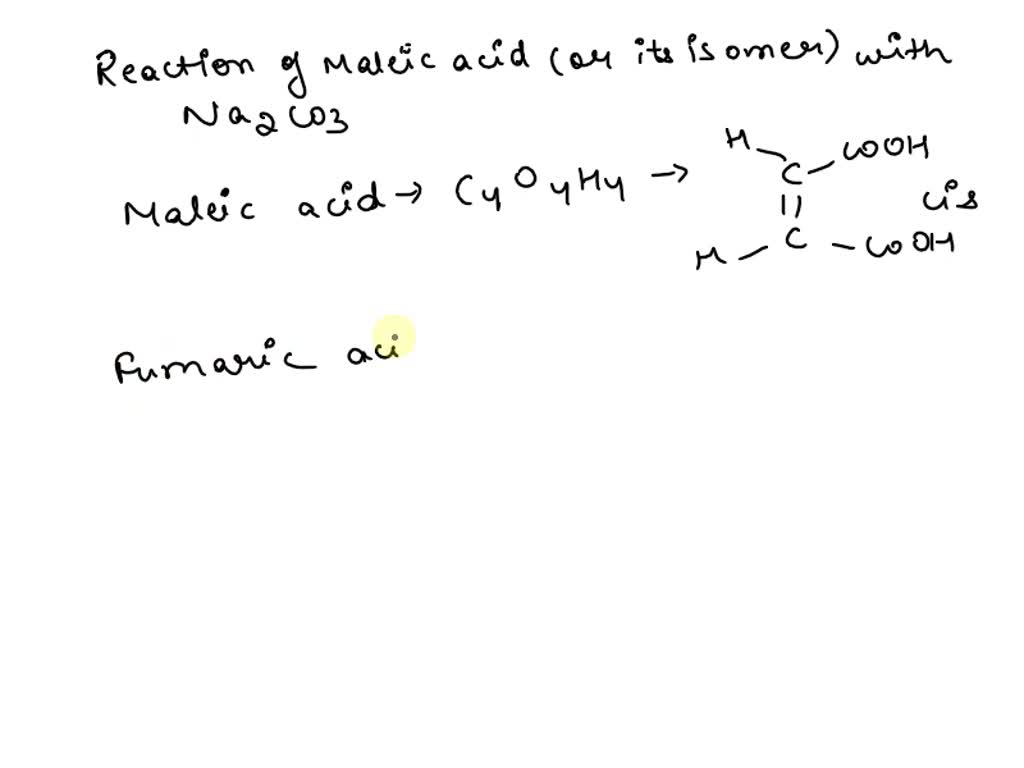 Reaction of Maleic acid (or its isomer) with
Na2CO3
Maleic acid → C4O4H4 →
H COOH
C
||
C cis
H COOH
Fumaric aci